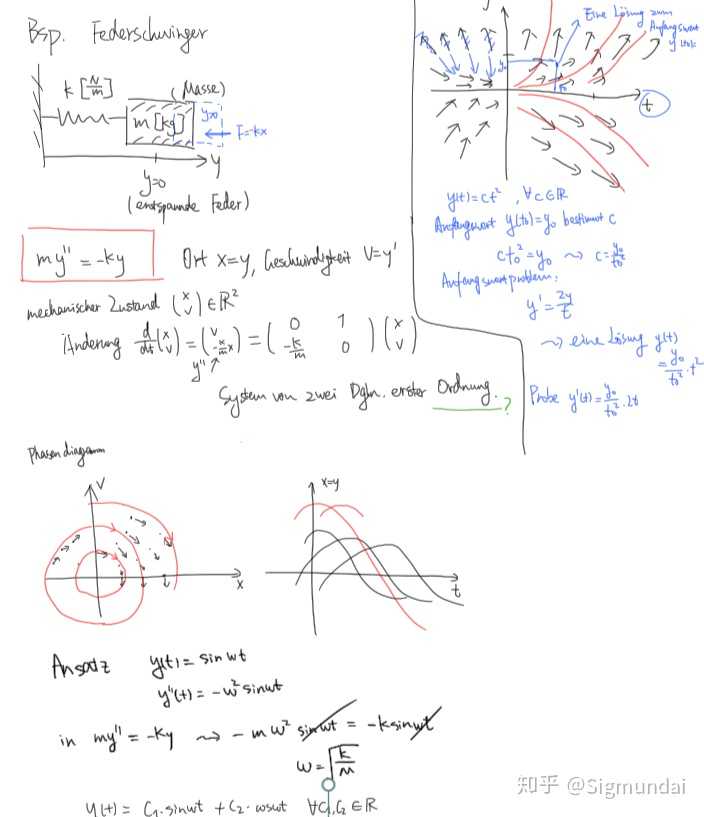 Bsp. Federschwinger
k [N/m]
(Masse)
m [kg]
y>0
F=-kx
y
y=0
(entspannte Feder)
my'' = -ky
Ort x=y, Geschwindigkeit V=y'
mechanischer Zustand (x v) ∈ ℝ²
Änderung d/dt (x v) = (v -k/m x) = (0 1 -k/m 0) (x v)
y''
System von zwei Dgln. erster Ordnung. ?
Eine Lösung zum
Anfangswert
y(t₀)=
y₀
t₀
t
y(t)=ct² , ∀c∈ℝ
Anfangswert y(t₀)=y₀ bestimmt c
ct₀²=y₀ ⤳ c=y₀/t₀²
Anfangswertproblem:
y' = 2y/t
⤳ eine Lösung y(t)
= y₀/t₀² · t²
Probe y'(t)= y₀/t₀² · 2t
Phasendiagramm
V
x
x=y
t
Ansatz y(t) = sin wt
y''(t) = -w² sin wt
in my'' = -ky ⤳ - m w² sin wt = -k sin wt
w = √(k/m)
y(t) = C₁· sin wt + C₂· cos wt ∀C₁,C₂ ∈ ℝ
知乎 @Sigmundai